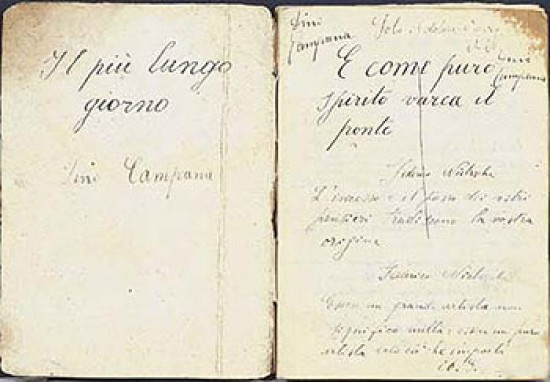 Il più lungo
giorno
Dino Campana
Dini
Campana
Solo il dolore è
Dino
Campana
E come puro
spirito varca il
ponte
Federico Nietzsche
L'incesso e il passo dei vostri
pensieri tradiranno la vostra
origine
Federico Nietzsche
Essere un grande artista non
significa nulla: essere un puro
artista ecco ciò che importa